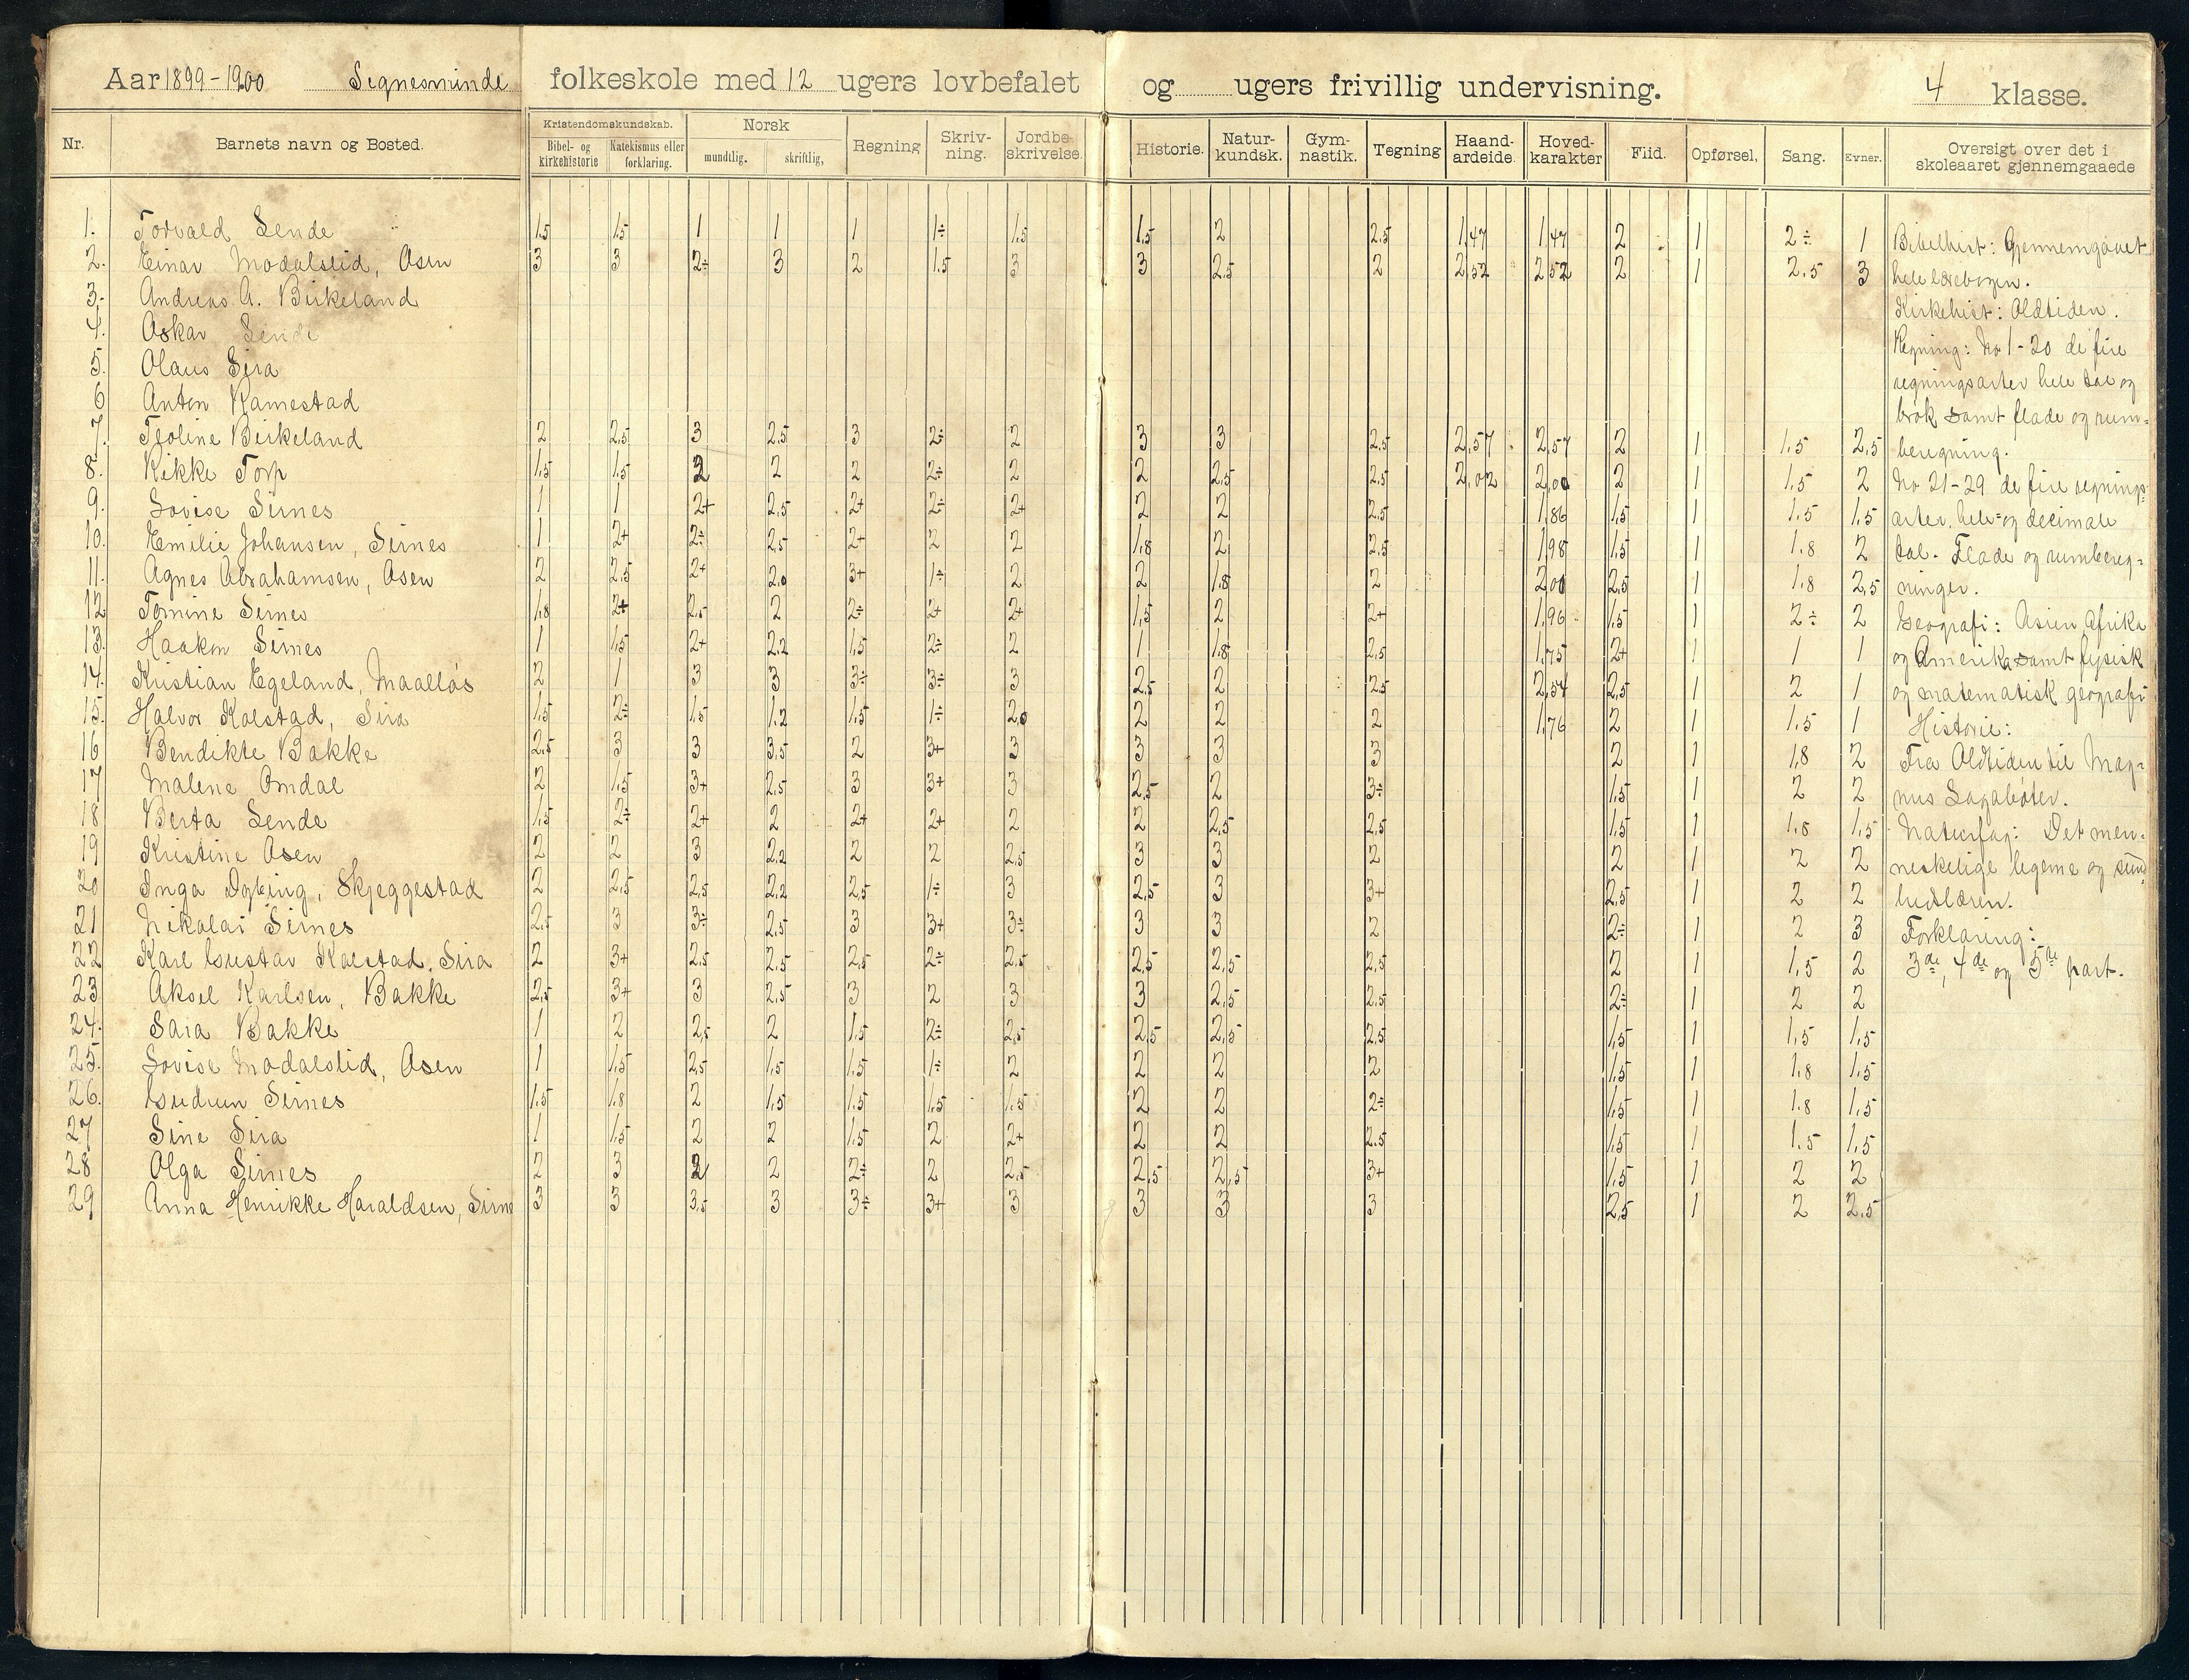 Aar 1899-1900 Segnesminde folkeskole med 12 ugers lovbefalet og ugers frivillig undervisning. 4 klasse.
Nr. Barnets navn og Bosted. Kristendomskundskab. Bibel- og kirkehistorie Katekismus eller forklaring. Norsk mundtlig. skriftlig, Regning Skriv-ning. Jordbe-skrivelse. Historie. Natur-kundsk. Gym-nastik. Tegning Haand-ardeide. Hoved-karakter Flid. Opførsel, Sang. Evner. Oversigt over det i skoleaaret gjennemgaaede
1. Torvald Sende 1.5 1.5 1 1 1 1÷ 1.5 1.5 2 2.5 1,47 1,47 2 1 2÷ 1
2. Einar Modalslid, Osen 3 3 2÷ 3 2 1.5 3 3 2.5 2 2,52 2,52 2 1 2.5 3
3. Andreas A. Birkeland
4. Oskar Sende
5. Olaus Sira
6 Anton Ramestad
7. Teoline Birkeland 2 2,5 3 2,5 3 2÷ 2 3 3 2.5 2,57 2,57 2 1 1.5 2,5
8. Rikke Torp 1,5 1.5 2 2 2 2÷ 2 2 2,5 2.5 2,02 2,00 2 1 1.5 2
9. Lovise Sirnes 1 1 2+ 2,5 2+ 2÷ 2+ 2 2 2.5 1,86 1,5 1 1.5 1.5
10. Emilie Johansen, Sirnes 1 2+ 2÷ 2,5 2+ 2 2 1.8 2 2.5 1,98 1.5 1 1.8 2
11. Agnes Abrahamsen, Osen 2 2.5 2+ 2,0 3+ 1÷ 2 2 1.8 2 2,00 2,5 1 1.8 2,5
12 Tomine Sirnes 1,8 2+ 2,5 2 2÷ 2+ 2+ 1,5 2 2+ 1,96 1.5 1 2÷ 2
13. Haakon Sirnes 1 1,5 2+ 2,2 1,5 2÷ 2 1 1.8 2.5 1,75 2+ 1 1 1
14. Kristian Egeland, Maalløs 2 1 3 3 3÷ 3÷ 3 2,5 2 2.5 2,54 2,5 1 2 1
15. Halvor Kolstad, Sira 1.5 2÷ 1.5 1.2 1.5 1÷ 2,0 2 2 2 1,76 2 1 1.5 1
16 Bendikte Bakke 2,5 3 3 3,5 2 3+ 3 3 3 3 2 1 1,8 2
17 Malene Omdal 2 1.5 3+ 2,5 3 3+ 3 2,5 2 3÷ 1.5 1 2 2
18 Berta Sende 1,5 2÷ 2+ 2 2+ 2+ 2 2 2,5 2.5 1.5 1 1.8 1,5
19 Kristine Osen 2 2 3 2,2 2 2 2,5 3 3 2 2 1 2 2
20 Inga Dybing, Skjeggestad 2 2,5 2,5 2,2 2,5 1÷ 3 2,5 3 3+ 2,5 1 2 2
21 Nikolai Sirnes 2,5 3 3÷ 2,5 3 3+ 3÷ 3 3 2 2÷ 1 2 3
22 Karl Gustav Kolstad, Sira 2 3+ 2,5 2,5 2,5 2÷ 2,5 2,5 2,5 2,5 2 1 1,5 2
23 Aksel Karlsen, Bakke 2,5 3+ 3 2,5 3 2 3 3 2,5 2.5 2÷ 1 2 2
24. Sara Bakke 1 2 2,5 2 1.5 2÷ 2,5 2,5 2,5 2.5 1,5 1 1,5 1,5
25. Lovise Modalslid, Osen 1 1,5 2,5 1,5 1.5 1÷ 2 2 2 2 1,5 1 1.8 1,5
26. Gudrun Sirnes 1.5 1.8 2 1,5 1.5 1,5 1.5 2 2 2÷ 1,5 1 1.8 1,5
27 Sine Sira 1 1.5 2 2 1.5 2 2+ 2 2 2.5 1,5 1 1.5 1,5
28 Olga Sirnes 2 3 2 2 2÷ 2 2,5 2,5 2,5 3+ 1,5 1 2 2
29 Anna Henrikke Haraldsen, Sirne 3 3 3,5 3 3÷ 3+ 3 3 3 3 2,5 1 2 2,5
Bibelhist: Gjennemgaaet
hele lærebogen.
Kirkehist: Oldtiden.
Regning: No 1-20 de fire
regningsarter hele tal og
brøk samt flade og rum-
beregning.
No 21-29 de fire regnings-
arter, hele- og decimale
tal. Flade og rumbereg-
ninger.
Geografi: Asien Afrika
og Amerika samt fysisk
og matematisk geografi
Historie:
Fra Oldtiden til Mag-
nus Lagabøter.
Naturfag: Det men-
neskelige legeme og sund-
hedslæren.
Forklaring:
3de, 4de og 5te part.